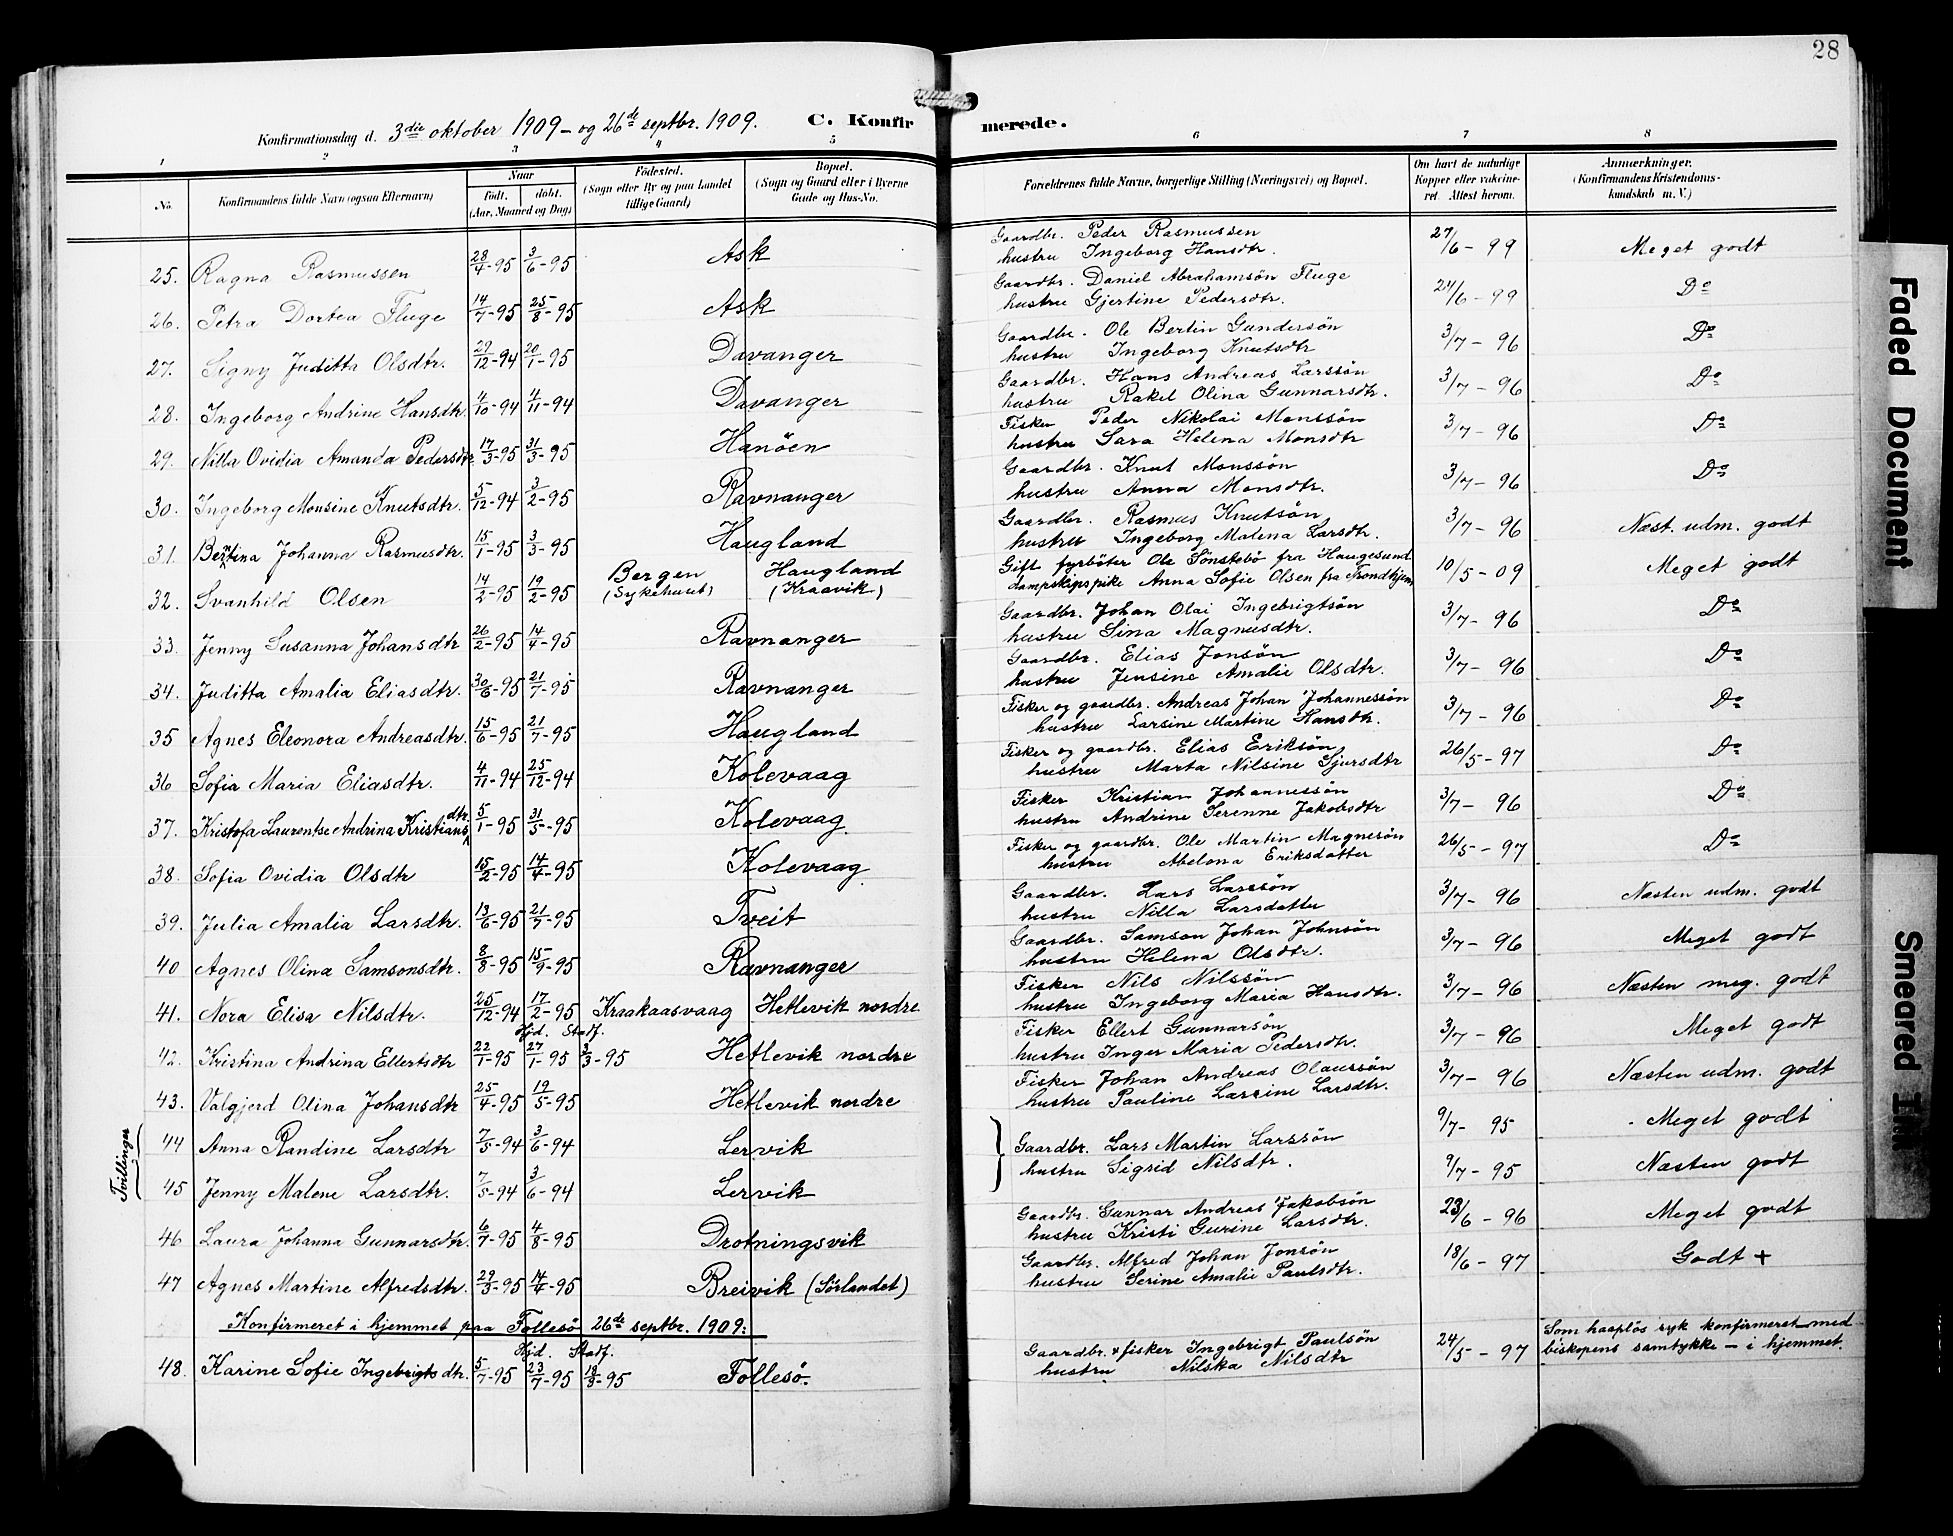 28
Konfirmationsdag d. 3die oktober 1909 – og 26de septbr. 1909. C. Konfirmerede.
1 2 3 4 5 6 7 8
No. Konfirmandens fulde Navn (ogsaa Efternavn) Naar født. døbt. (Aar, Maaned og Dag) Fødested. (Sogn eller By og paa Landet tillige Gaard) Bopæl. (Sogn og Gaard eller i Byerne Gade og Hus-No. Forældrenes fulde Navne, borgerlige Stilling (Næringsvei) og Bopæl. Om havt de naturlige Kopper eller vaccineret. Attest herom. Anmærkninger. (Konfirmandens Kristendomskundskab m. V.)
25. Ragna Rasmussen 28/4-95 3/6-95 Ask Gaardbr. Peder Rasmussen 27/6 - 99 Meget godt
hustru Ingeborg Hansdtr.
26. Petra Dortea Fluge 14/7-95 25/8-95 Ask Gaardbr. Daniel Abrahamsön Fluge 27/6 - 99 Do
hustru Gjertine Pedersdtr.
27. Signy Juditta Olsdtr. 29/12-94 20/1-95 Davanger Gaardbr. Ole Bertin Gundersön 3/7 - 96 Do
hustru Ingeborg Knutsdtr
28. Ingeborg Andrine Hansdtr. 4/10-94 4/11-94 Davanger Gaardbr. Hans Andreas Larssön 3/7 - 96 Do
hustru Rakel Olina Gunnarsdtr.
29. Nilla Ovidia Amanda Pedersdtr. 17/3-95 31/3-95 Hanöen Fisker Peder Nikolai Monssön 3/7 - 96 Do
hustru Sara Helena Monsdtr
30. Ingeborg Monsine Knutsdtr. 5/12-94 3/2-95 Ravnanger Gaardbr. Knut Monssön 3/7 - 96 Do
hustru Anna Monsdtr.
31. Bertina Johanna Rasmusdtr. 15/1-95 3/3-95 Haugland Gaardbr. Rasmus Knutsön 3/7 - 96 Næst. udm. godt
hustru Ingeborg Malena Larsdtr.
32. Svanhild Olsen 14/2-95 19/2-95 Bergen (Sykehuset) Haugland (Kraavik) Gift fyrböter Ole Sönstebö fra Haugesund 10/5 - 09 Meget godt
dampskipspike Anna Sofie Olsen fra Trondhjem
33. Jenny Susanna Johansdtr 26/2-95 14/4-95 Ravnanger Gaardbr. Johan Olai Ingebrigtsön 3/7 - 96 Do
hustru Sina Magnusdtr.
34. Juditta Amalia Eliasdtr. 30/6-95 21/7-95 Ravnanger Gaardbr. Elias Jonsön 3/7 - 96 Do
hustru Jensine Amalie Olsdtr.
35 Agnes Eleonora Andreasdtr. 15/6-95 21/7-95 Haugland Fisker og gaardbr. Andreas Johan Johannessön 3/7 - 96 Do
hustru Larsine Martine Hansdtr.
36 Sofia Maria Eliasdtr. 4/11-94 25/12-94 Kolevaag Fisker og gaardbr. Elias Eriksön 26/5 - 97 Do
hustru Marta Nilsine Sjursdtr
37. Kristofa Laurentse Andrina Kristiansdtr. 5/1-95 31/5-95 Kolevaag Fisker Kristian Johannessön 3/7 - 96 Do
hustru Andrine Serenne Jakobsdtr
38. Sofia Ovidia Olsdtr 15/2-95 14/4-95 Kolevaag Fisker og gaardbr. Ole Martin Magnesön 26/5 - 97 Do
hustru Abelona Eriksdatter
39. Julia Amalia Larsdtr. 13/6-95 21/7-95 Tveit Gaardbr. Lars Larssön 3/7 - 96 Næsten udm. godt
hustru Nilla Larsdatter
40 Agnes Olina Samsonsdtr. 8/8-95 15/9-95 Ravnanger Gaardbr. Samson Johan Johnsön 3/7 - 96 Meget godt
hustru Helena Olsdtr.
41. Nora Elisa Nilsdtr. 25/12-94 17/2-95 Kraakaasvaag Hetlevik nordre Fisker Nils Nilssön 3/7 - 96 Næsten meg. godt
hustru Ingeborg Maria Hansdtr.
Hjd. Stadf.
42. Kristina Andrina Ellertsdtr 22/1-95 27/1-95 3/3-95 Hetlevik nordre Fisker Ellert Gunnarsön 3/7 - 96 Meget godt
hustru Inger Maria Pedersdtr.
43. Valgjerd Olina Johansdtr 25/4-95 19/5-95 Hetlevik nordre Fisker Johan Andreas Olaussön 3/7 - 96 Næsten udm. godt
hustru Pauline Larsine Larsdtr.
Tvillinger
44 Anna Randine Larsdtr 7/5-94 3/6-94 Lervik Gaardbr. Lars Martin Larssön 9/7 - 95 Meget godt
45 Jenny Malene Larsdtr. 7/5-94 3/6-94 Lervik hustru Sigrid Nilsdtr. 9/7 - 95 Næsten godt
46 Laura Johanna Gunnarsdtr. 6/7-95 4/8-95 Drotningsvik Gaardbr. Gunnar Andreas Jakobsön 23/6 - 96 Meget godt
hustru Kristi Gurine Larsdtr.
47 Agnes Martine Alfredsdtr. 29/3-95 14/4-95 Breivik (Sörlandet) Gaardbr. Alfred Johan Jonsön 18/6 - 97 Godt +
hustru Serine Amalie Paulsdtr.
Konfirmeret i hjemmet paa Follesö 26de septbr. 1909:
Hjd. Stadf.
48. Karine Sofie Ingebrigtsdtr. 5/7-95 23/7-95 18/8-95 Follesö. Gaardbr. & fisker Ingebrigt Paulsön 24/5 - 97 Som haaplös syk konfirmeret med
hustru Nilska Nilsdtr biskopens samtykke – i hjemmet.
Faded Document
Smeared Ink